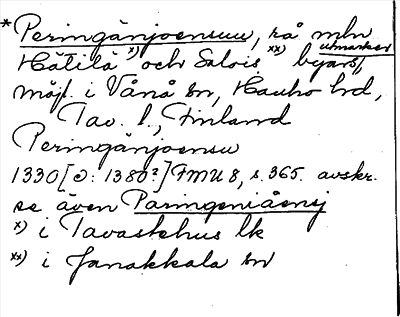 *Peringänjoensuu, rå mln
Hätilä x) och Salois xx) byars utmarker,
möjl. i Vånå sn, Hauho hd,
Tav. l., Finland
Peringänjoensu
1330 [ɔ: 1380?] FMU 8, s. 365. avskr.
se även Paringeniåensj
x) i Tavastehus lk
xx) i Janakkala sn